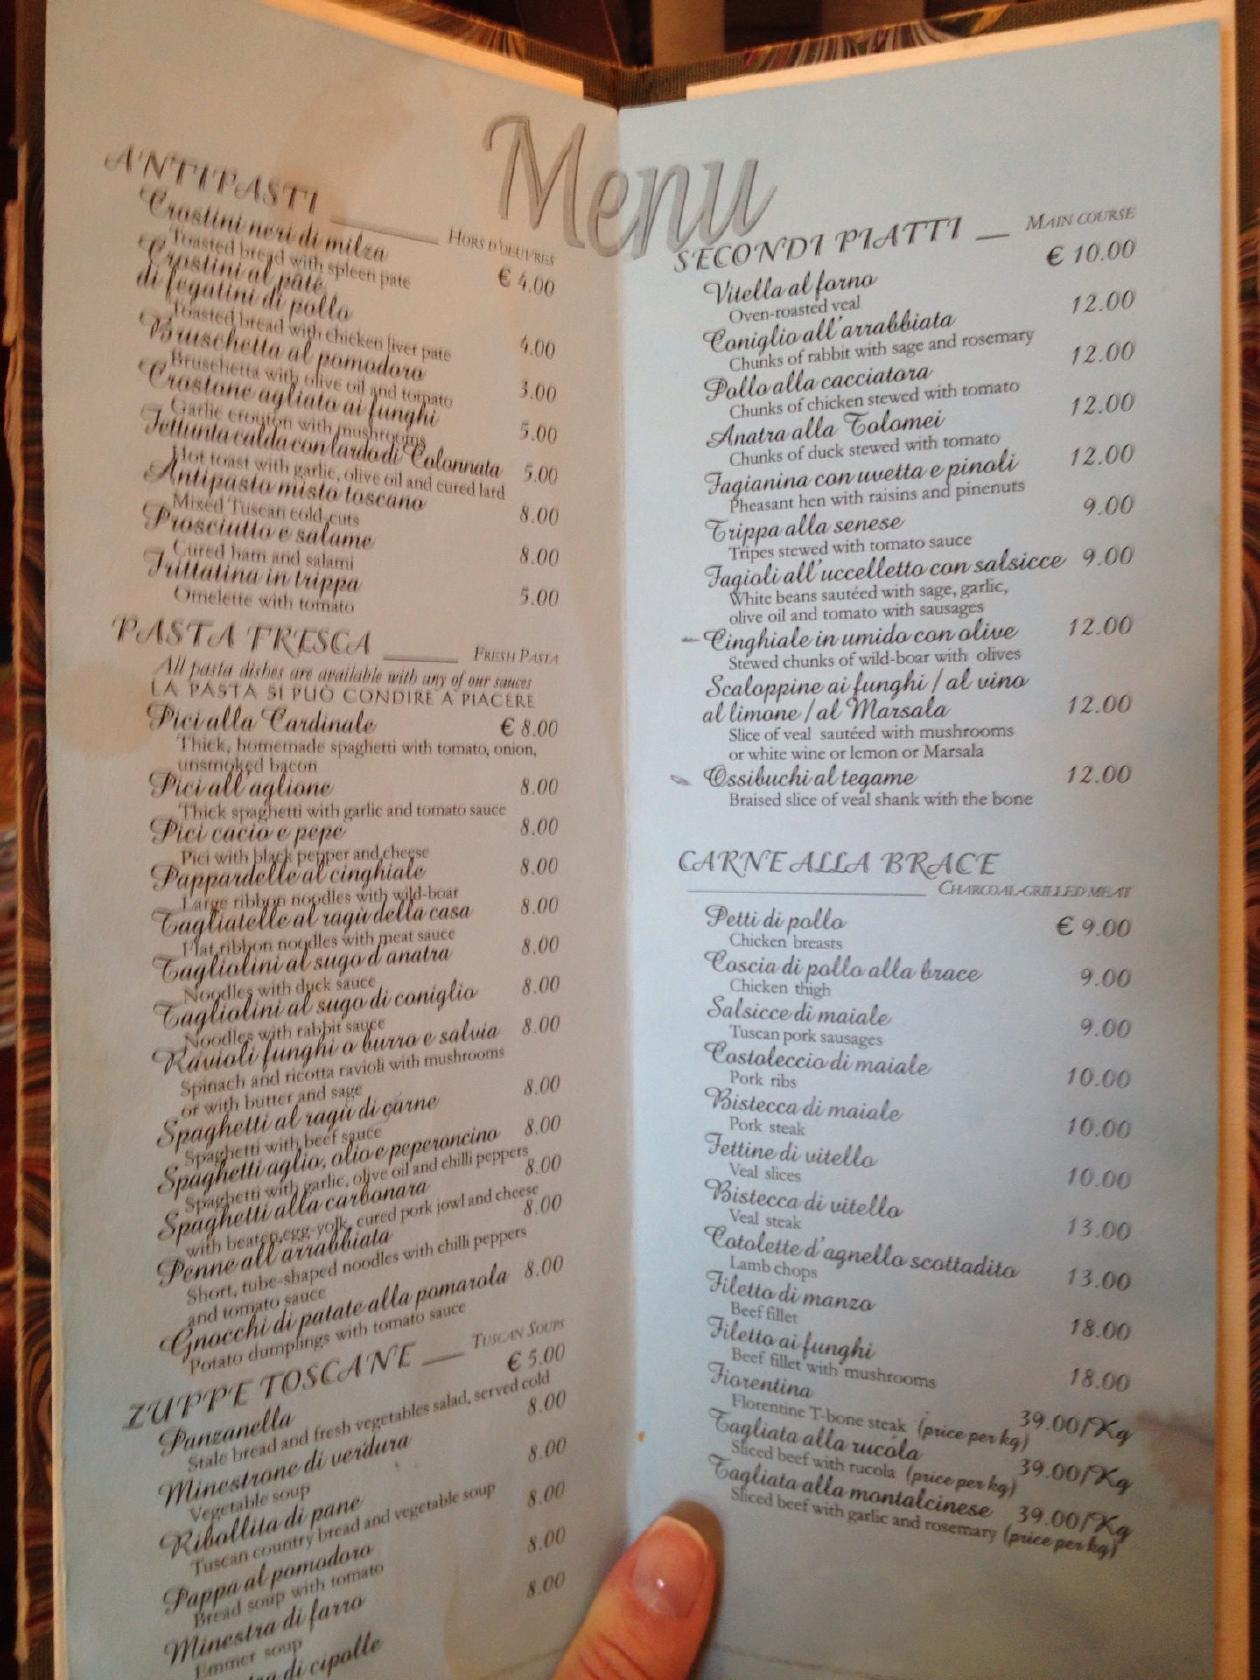 Menu
ANTIPASTI HORS D'OEUVRES
Crostini neri di milza € 4.00
Toasted bread with spleen pate
Crostini al pâté
di fegatini di pollo 4.00
Toasted bread with chicken liver pate
Bruschetta al pomodoro 3.00
Bruschetta with olive oil and tomato
Crostone agliato ai funghi 5.00
Garlic crouton with mushrooms
Fettunta calda con lardo di Colonnata 5.00
Hot toast with garlic, olive oil and cured lard
Antipasto misto toscano 8.00
Mixed Tuscan cold cuts
Prosciutto e salame 8.00
Cured ham and salami
Frittatina in trippa 5.00
Omelette with tomato
PASTA FRESCA FRESH PASTA
All pasta dishes are available with any of our sauces
LA PASTA SI PUÒ CONDIRE A PIACERE
Pici alla Cardinale € 8.00
Thick, homemade spaghetti with tomato, onion,
unsmoked bacon
Pici all'aglione 8.00
Thick spaghetti with garlic and tomato sauce
Pici cacio e pepe 8.00
Pici with black pepper and cheese
Pappardelle al cinghiale 8.00
Large ribbon noodles with wild-boar
Tagliatelle al ragù della casa 8.00
Flat ribbon noodles with meat sauce
Tagliolini al sugo d'anatra 8.00
Noodles with duck sauce
Tagliolini al sugo di coniglio 8.00
Noodles with rabbit sauce
Ravioli funghi o burro e salvia 8.00
Spinach and ricotta ravioli with mushrooms
or with butter and sage
Spaghetti al ragù di carne 8.00
Spaghetti with beef sauce
Spaghetti aglio, olio e peperoncino 8.00
Spaghetti with garlic, olive oil and chilli peppers
Spaghetti alla carbonara 8.00
with beaten egg-yolk, cured pork jowl and cheese
Penne all'arrabbiata 8.00
Short, tube-shaped noodles with chilli peppers
and tomato sauce
Gnocchi di patate alla pomarola 8.00
Potato dumplings with tomato sauce
ZUPPE TOSCANE TUSCAN SOUPS
Panzanella € 5.00
Stale bread and fresh vegetables salad, served cold
Minestrone di verdura 8.00
Vegetable soup
Ribollita di pane 8.00
Tuscan country bread and vegetable soup
Pappa al pomodoro 8.00
Bread soup with tomato
Minestra di farro 8.00
Emmer soup
di cipolle 8.00
SECONDI PIATTI MAIN COURSE
Vitella al forno € 10.00
Oven-roasted veal
Coniglio all'arrabbiata 12.00
Chunks of rabbit with sage and rosemary
Pollo alla cacciatora 12.00
Chunks of chicken stewed with tomato
Anatra alla Tolomei 12.00
Chunks of duck stewed with tomato
Fagianina con uvetta e pinoli 12.00
Pheasant hen with raisins and pinenuts
Trippa alla senese 9.00
Tripes stewed with tomato sauce
Fagioli all'uccelletto con salsicce 9.00
White beans sautéed with sage, garlic,
olive oil and tomato with sausages
Cinghiale in umido con olive 12.00
Stewed chunks of wild-boar with olives
Scaloppine ai funghi / al vino
al limone / al Marsala 12.00
Slice of veal sautéed with mushrooms
or white wine or lemon or Marsala
Ossibuchi al tegame 12.00
Braised slice of veal shank with the bone
CARNE ALLA BRACE
CHARCOAL-GRILLED MEAT
Petti di pollo € 9.00
Chicken breasts
Coscia di pollo alla brace 9.00
Chicken thigh
Salsicce di maiale 9.00
Tuscan pork sausages
Costoleccio di maiale 10.00
Pork ribs
Bistecca di maiale 10.00
Pork steak
Fettine di vitello 10.00
Veal slices
Bistecca di vitello 13.00
Veal steak
Cotolette d'agnello scottadito 13.00
Lamb chops
Filetto di manzo 18.00
Beef fillet
Filetto ai funghi 18.00
Beef fillet with mushrooms
Fiorentina 39.00/Kg
Florentine T-bone steak (price per kg)
Tagliata alla rucola 39.00/Kg
Sliced beef with rucola (price per kg)
Tagliata alla montalcinese 39.00/Kg
Sliced beef with garlic and rosemary (price per kg)